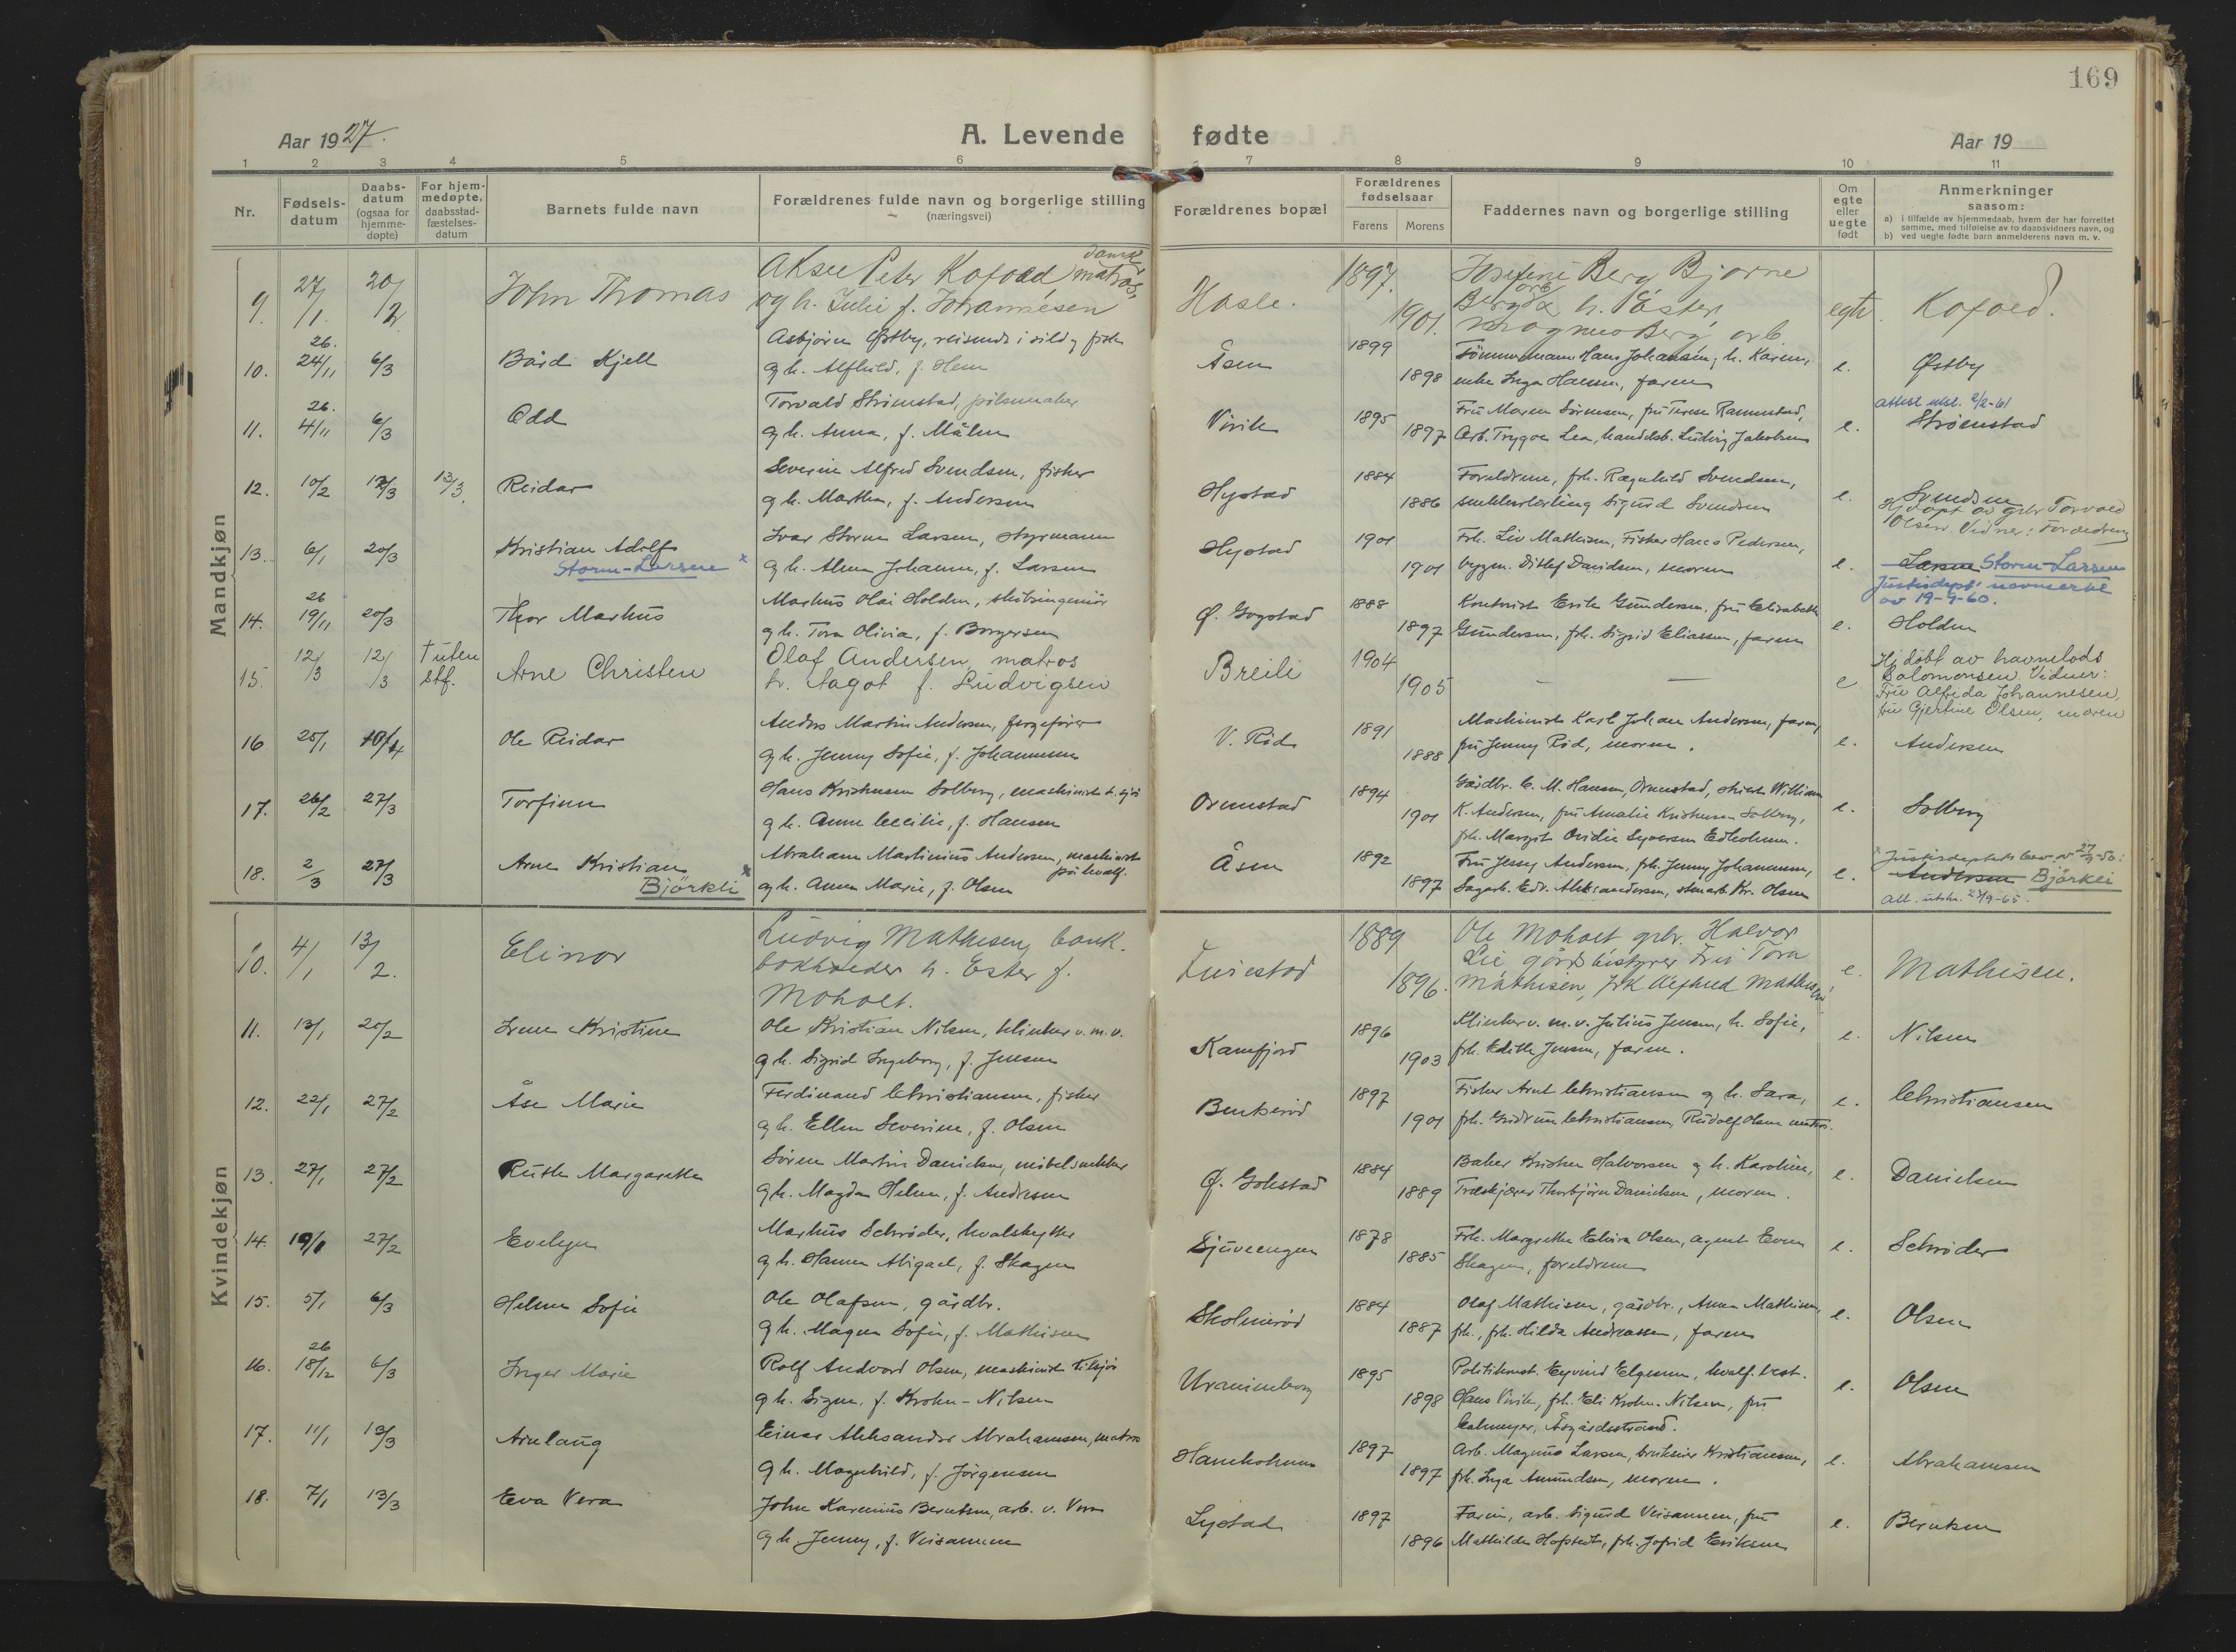 169
Aar 1927.
A. Levende fødte
Aar 19
1 2 3 4 5 6 7 8 9 10 11
Nr.
Fødsels-
datum
Daabs-
datum
(ogsaa for
hjemme-
døpte)
For hjem-
medøpte,
daabsstad-
fæstelses-
datum
Barnets fulde navn
Forældrenes fulde navn og borgerlige stilling
(næringsvei)
Forældrenes bopæl
Forældrenes
fødselsaar
Farens Morens
Faddernes navn og borgerlige stilling
Om
egte
eller
uegte
født
Anmerkninger
saasom:
a) i tilfælde av hjemmedaab, hvem der har forrettet
samme, med tilføielse av to daabsvidners navn, og
b) ved uegte fødte barn anmelderens navn m. v.
Mandkjøn
9. 27/1. 20/2 John Thomas
Aksel Peter Kofoed dansk matros,
og h. Julie f. Johannesen
Hasle. 1897. 1901.
Josefine Berg Bjarne
Berg arb. h. Ester,
Magnus Berg arb.
egte. Kofoed.
10. 26. 24/11 6/3 Bård Kjell
Asbjørn Østby, reisende i sild og fisk
og h. Alfhild, f. Hem
Åsen 1899 1898
Tømmermann Hans Johansen, h. Karen,
enke Inga Hansen, faren
e. Østby
11. 26. 4/11 6/3 Odd
Torvald Strømstad, pølsemaker
og h. Anna, f. Målen
Virik 1895 1897
Fru Maren Sørensen, fru Terese Ramnestad,
Arb. Trygve Lea, handelsb. Ludvig Jakobsen
e. attest utst. 2/2-61
Strømstad
12. 10/2 13/3 13/3. Reidar
Severin Alfred Svendsen, fisker
og h. Martha, f. Andersen
Hystad 1884 1886
Foreldrene, frk. Ragnhild Svendsen,
snekkerlærling Sigurd Svendsen
e. Svendsen
Hj.døpt av grb. Torvald
Olsen. Vidner: Forældrene
13. 6/1 20/3 Kristian Adolf
Storm-Larsen x
Ivar Storm Larsen, styrmann
og h. Alma Johanne, f. Larsen
Hystad 1901 1901
Frk. Liv Mathisen, Fisker Hans Pedersen,
byggm. Ditlef Davidsen, moren
e. Larsen Storm-Larsen
Justisdept. navneendr.
av 19-9-60.
14. 26 19/11 20/3 Thor Markus
Markus Olai Holden, skibsingeniør
og h. Tora Olivia, f. Borgersen
Ø. Gogstad 1888 1897
Kontorist Erik Gundersen, fru Elisabeth
Gundersen, frk. Sigrid Eliassen, faren
e. Holden
15. 12/3 12/3 † uten
stf. Arne Christen
Olaf Andersen, matros
h. Aagot f. Ludvigsen
Breili 1904 1905
— —
e Hj.døbt av havnelods
Salomonsen. Vidner:
Fru Alfrida Johannesen,
fru Gjertine Olsen, moren
16 25/1 10/4 Ole Reidar
Anders Martin Andersen, fergefører
og h. Jenny Sofie, f. Johannesen
V. Rød 1891 1888
Maskinist Karl Johan Andersen, faren,
fru Jenny Rød, moren.
e. Andersen
17. 26/2 27/3 Torfinn
Hans Kristensen Solberg, maskinist t. sjøs
og h. Anne Cecilie, f. Hansen
Ormestad 1894 1901
Gårdbr. C. M. Hansen, Ormestad, William
K. Andersen, fru Amalie Kristensen Solberg,
frk. Margit Ovidie Syversen Edholmen.
e. Solberg
18. 2/3 27/3 Arne Kristian x
Björkli
Abraham Martinius Andersen, maskinist
på hvalf.
og h. Anna Marie, f. Olsen
Åsen 1892 1897
Fru Jenny Andersen, frk. Jenny Johannesen,
Sagarb. Edv. Aleksandersen, stenarb. Kr. Olsen
e. x Justisdeptets bev. av 27/3-50:
Andersen Björkli
Att. utstr. 27/9-65.
Kvindekjøn
10. 4/1 13/2. Elinor
Ludvig Mathisen, bank-
bokholder h. Ester f.
Moholt.
Furestad 1889 1896.
Ole Moholt grb. Halvor
Lie gårdsbestyrer Fru Tora
Mathisen, frk Alfhild Mathisen
e. Mathisen.
11. 13/1 20/2 Irene Kristine
Ole Kristian Nilsen, klinker v. m. v.
og h. Sigrid Ingeborg, f. Jensen
Kamfjord 1896 1903
Klinker v. m. v. Julius Jensen, h. Sofie,
frk. Edith Jensen, faren.
e. Nilsen
12. 22/1 27/2 Åse Marie
Ferdinand Christiansen, fisker
og h. Ellen Severine, f. Olsen
Bentserød 1897 1901
Fisker Arnt Christiansen og h. Sara,
frk. Gudrun Christiansen, Rudolf Olsen matros.
e. Christiansen
13. 27/1 27/2 Ruth Margarethe
Søren Martin Danielsen, møbelsnekker
og h. Magda Helene, f. Andresen
Ø. Gokstad 1884 1889
Baker Kristen Halvorsen og h. Karoline,
Træskjærer Thorbjørn Danielsen, moren.
e. Danielsen
14. 19/1 27/2 Evelyn
Markus Schrøder, hvalskytter
og h. Hanna Abigael, f. Skagen
Sjuveengen 1878 1885
Frk. Margrethe Elvira Olsen, agent Even
Skagen, foreldrene
e. Schrøder
15. 5/1 6/3 Helene Sofie
Ole Olafsen, gårdbr.
og h. Magna Sofie, f. Mathisen
Skolmerød 1884 1887
Olaf Mathisen, gårdbr., Anna Mathisen,
frk., frk. Hilda Andreassen, faren
e. Olsen
16. 26 18/12 6/3 Inger Marie
Rolf Andvord Olsen, maskinist tilsjøs
og h. Signe, f. Krohn-Nilsen
Uranienborg 1895 1898
Politikonst. Eyvind Elgesem, hvalf. best.
Hans Virik, frk. Eli Krohn-Nilsen, fru
Calmeyer, Åsgårdsstrand.
e. Olsen
17. 11/1 13/3 Arnlaug
Einar Aleksander Abrahamsen, matros
og h. Magnhild, f. Jørgensen
Haneholmen 1897 1897
Arb. Magnus Larsen, Kristiansen,
frk. Inga Amundsen, moren.
e. Abrahamsen
18. 7/1 13/3 Eva Vera
John Karenius Berntsen, arb. v. Vera
og h. Jenny, f. Veisammen
Lystad 1897 1896
Faren, arb. Sigurd Veisammen, fru
Mathilde Hofstedt, frk. Jofrid Eriksen
e. Berntsen